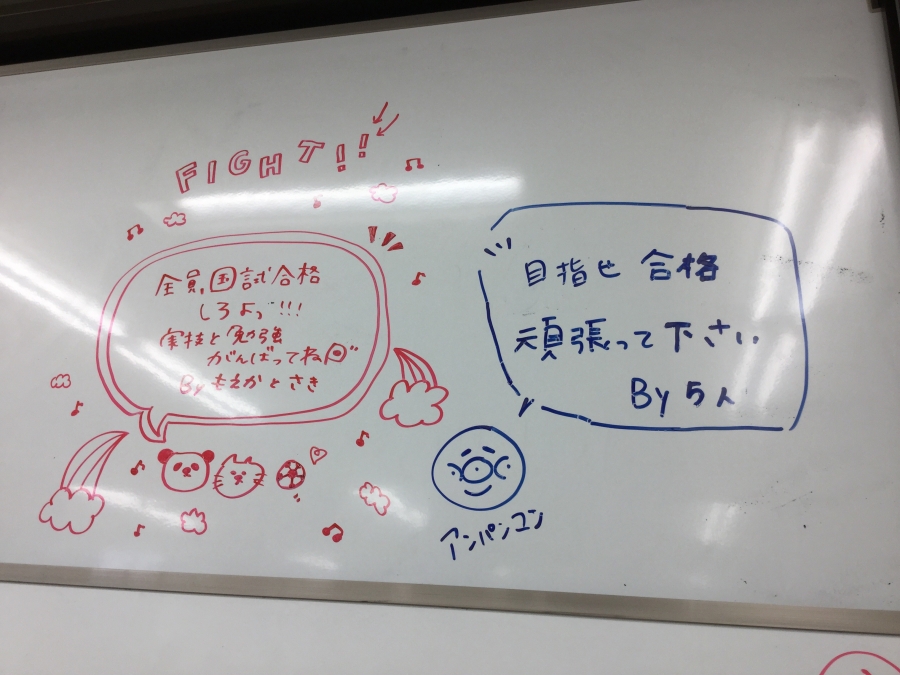 FIGHT!!
全員,国試合格
しろよっ!!!
実技と勉強
がんばってね
By もえかとさき
目指せ 合格
頑張って下さい
By 5人
アンパンユン